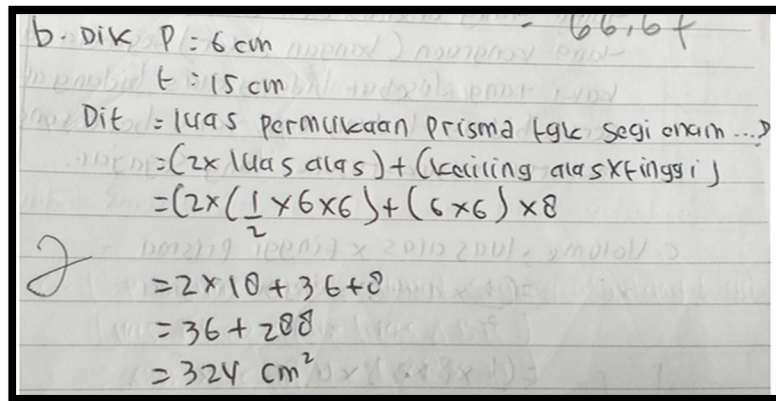 66,67
b. Dik P = 6 cm
t = 15 cm
Dit = luas permukaan prisma tgk segi enam ...?
= (2x luas alas) + (keliling alas x tinggi)
= (2x(1/2 x 6 x 6) + (6x6) x 8
= 2 x 18 + 36 + 8
= 36 + 288
= 324 cm²